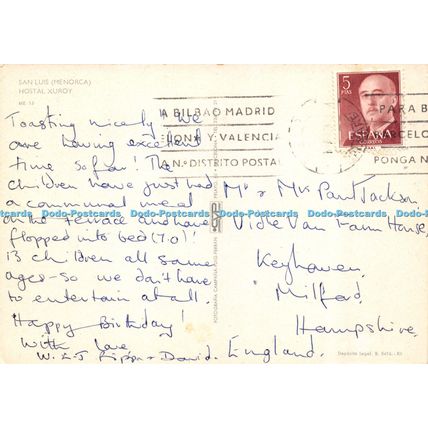 SAN LUIS (MENORCA)
HOSTAL XUROY
ME 53
Toasting nicely! We
are having excellent
time so far! The
children have just had
a communal meal
on the terrace and have
flopped into bed (7.0)!
13 children all same
ages - so we don't have
to entertain at all.
Happy Birthday!
With love
W. & J + David.
A BILBAO MADRID
ELONA Y VALENCIA
A N.º DISTRITO POSTA
5
PTAS
ESPAÑA
CORREOS
PARA B
BARCELO
PONGA N
Mr & Mrs Paul Jackson
Farm House,
Keyhaven,
Milford,
Hampshire.
England.
Depósito Legal: B.
Dodo-Postcards Dodo-Postcards Dodo-Postcards Dodo-Postcards